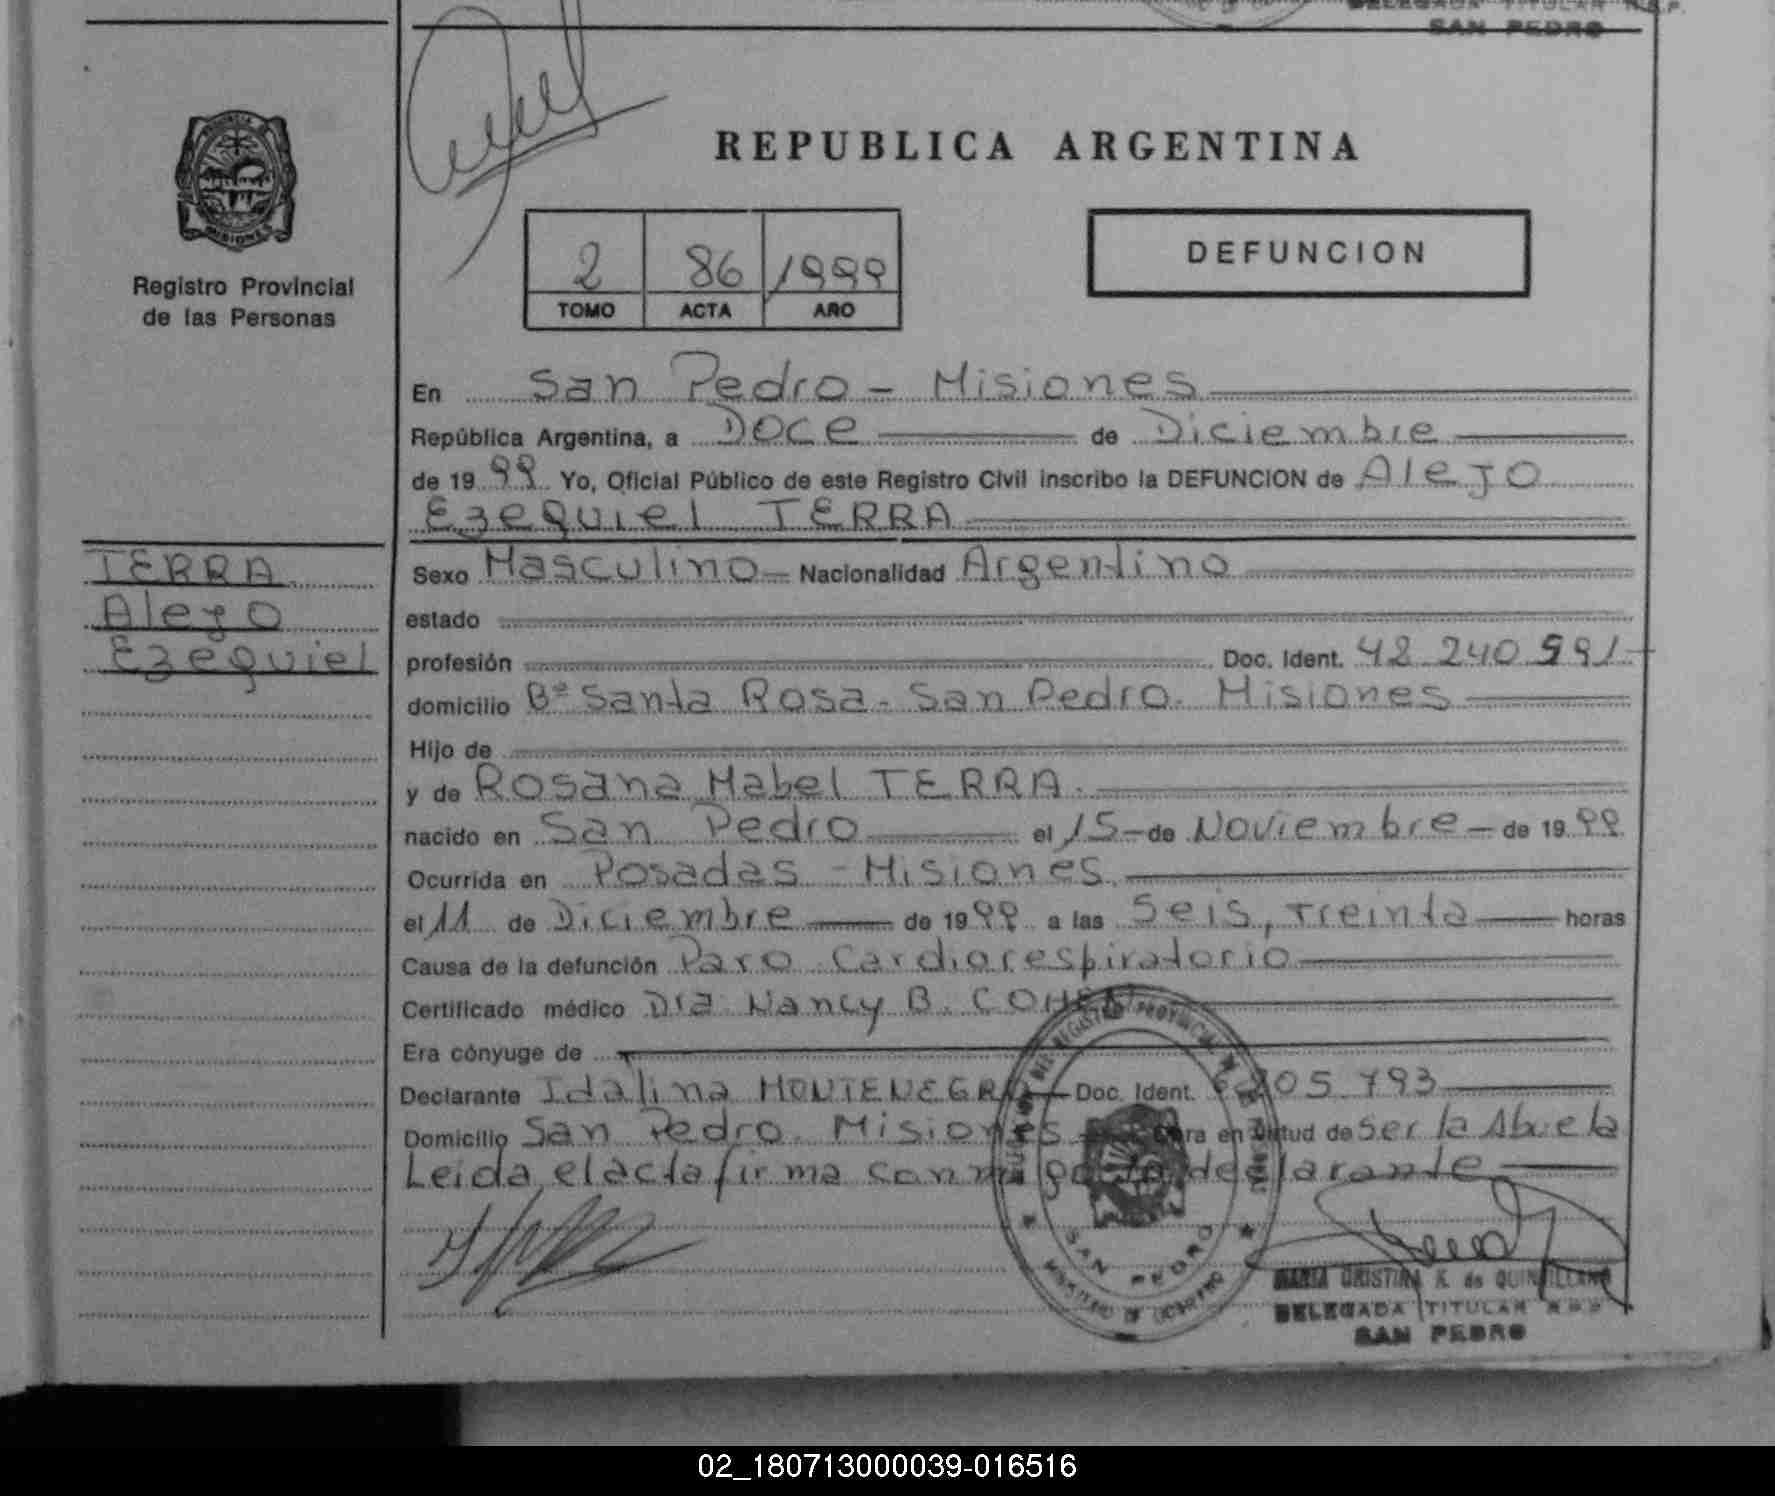 DELEGADA TITULAR R.S.P.
SAN PEDRO
PROVINCIA
MISIONES
Registro Provincial
de las Personas
REPUBLICA ARGENTINA
2 86 1999
TOMO ACTA AÑO
DEFUNCION
En San Pedro - Misiones
República Argentina, a Doce de Diciembre
de 1999 Yo, Oficial Público de este Registro Civil inscribo la DEFUNCION de Alejo
Ezequiel TERRA
TERRA
Alejo
Ezequiel
Sexo Masculino - Nacionalidad Argentino
estado
profesión Doc. Ident. 42.240.991-
domicilio Bº Santa Rosa. San Pedro. Misiones
Hijo de
y de Rosana Mabel TERRA.
nacido en San Pedro el 15 - de Noviembre - de 1999
Ocurrida en Posadas - Misiones
el 11 de Diciembre de 1999 a las Seis, Treinta horas
Causa de la defunción Paro Cardiorespiratorio
Certificado médico Dra. Nancy B. COHEN
Era cónyuge de
Declarante Idalina MONTENEGRO Doc. Ident. 205.793
Domicilio San Pedro. Misiones Obra en virtud de ser la Abuela
Leida el acta firma conmigo la declarante
SAN PEDRO
MINISTERIO DE GOBIERNO
MARIA CRISTINA K. de QUINTILLANO
DELEGADA TITULAR R.S.P.
SAN PEDRO
02_180713000039-016516